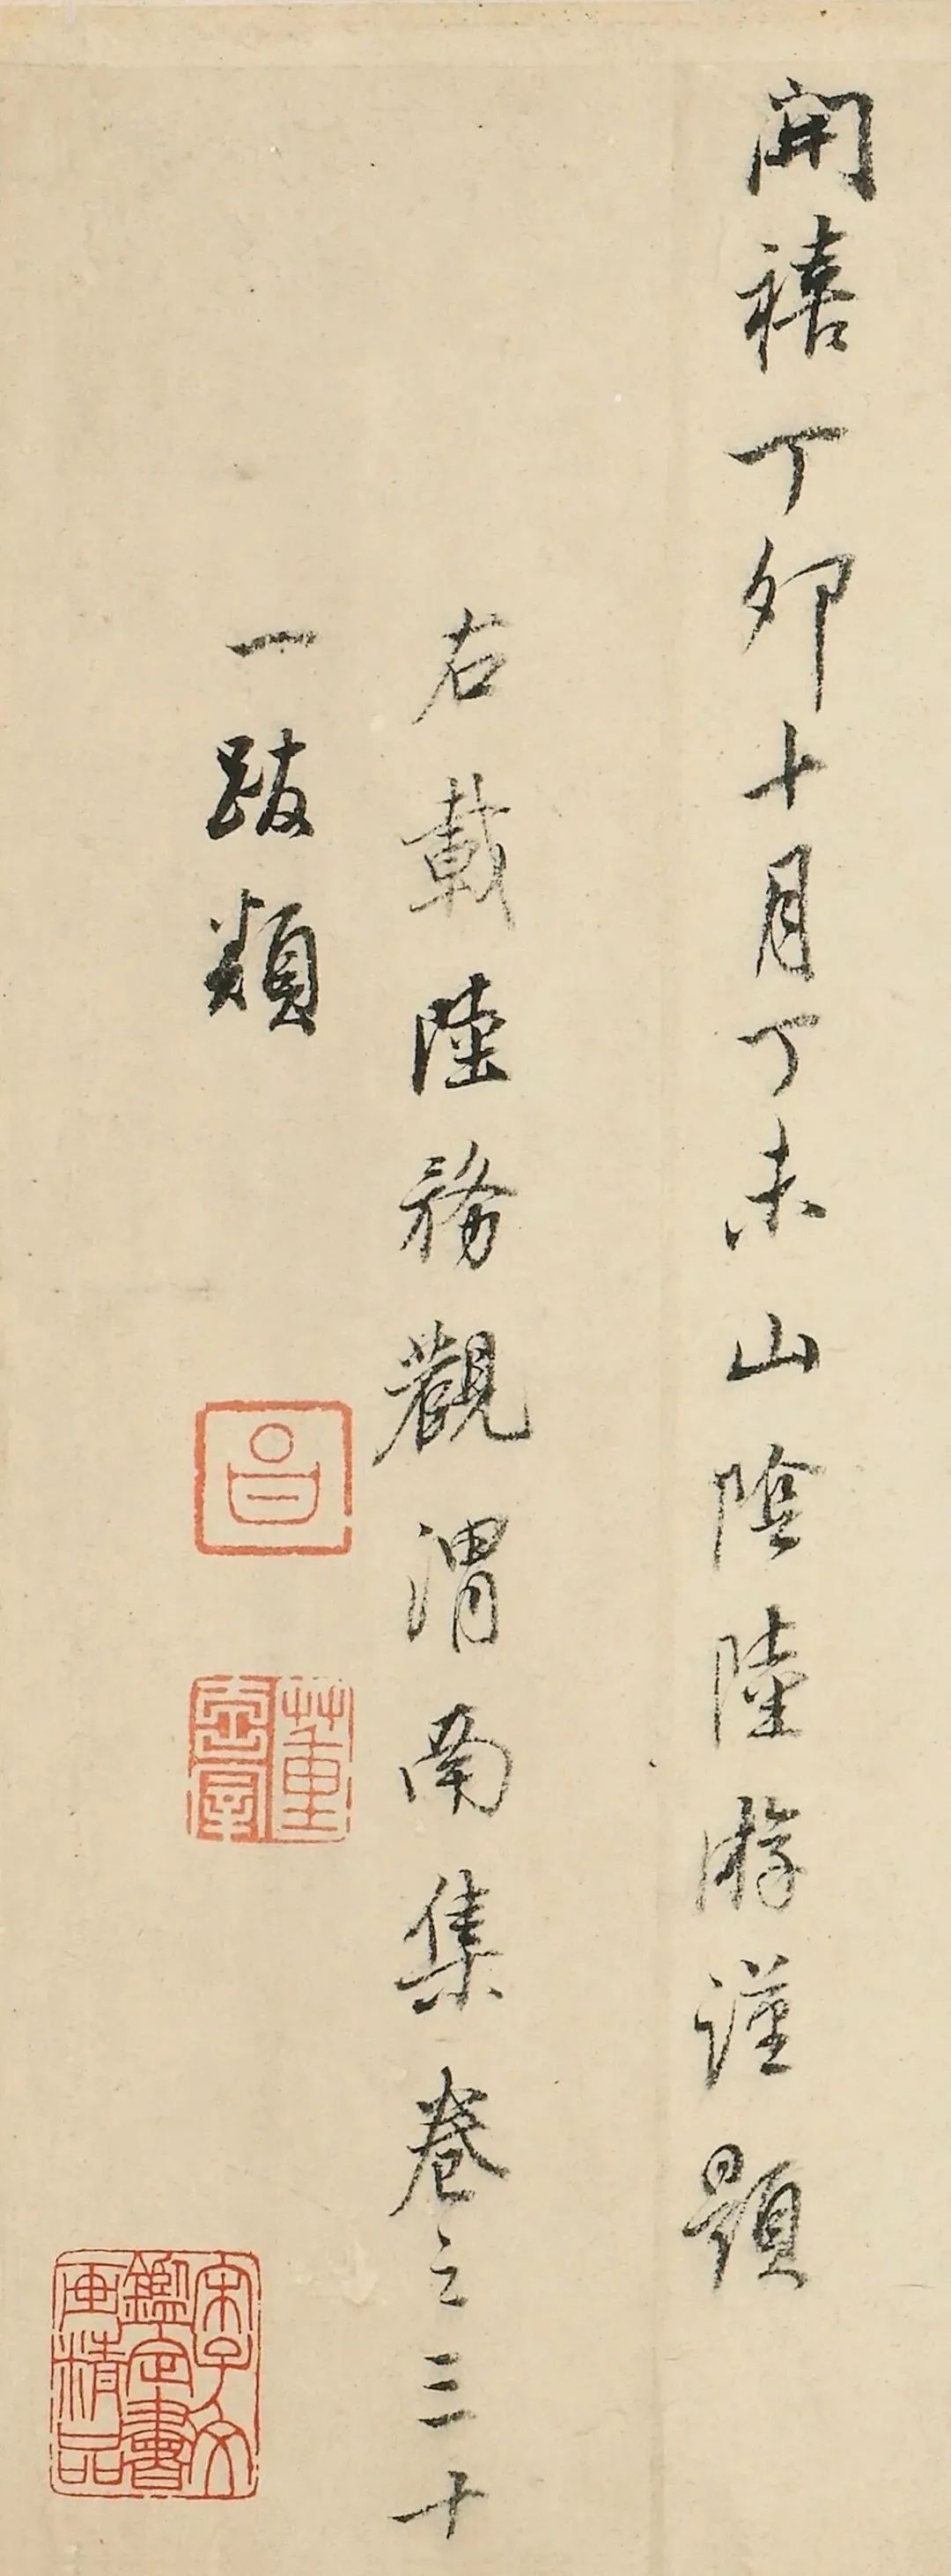 開禧丁卯十月丁未山陰陸游謹題
右載陸務觀渭南集卷之三十
一跋類
宋子文
鑑定書
畫精品